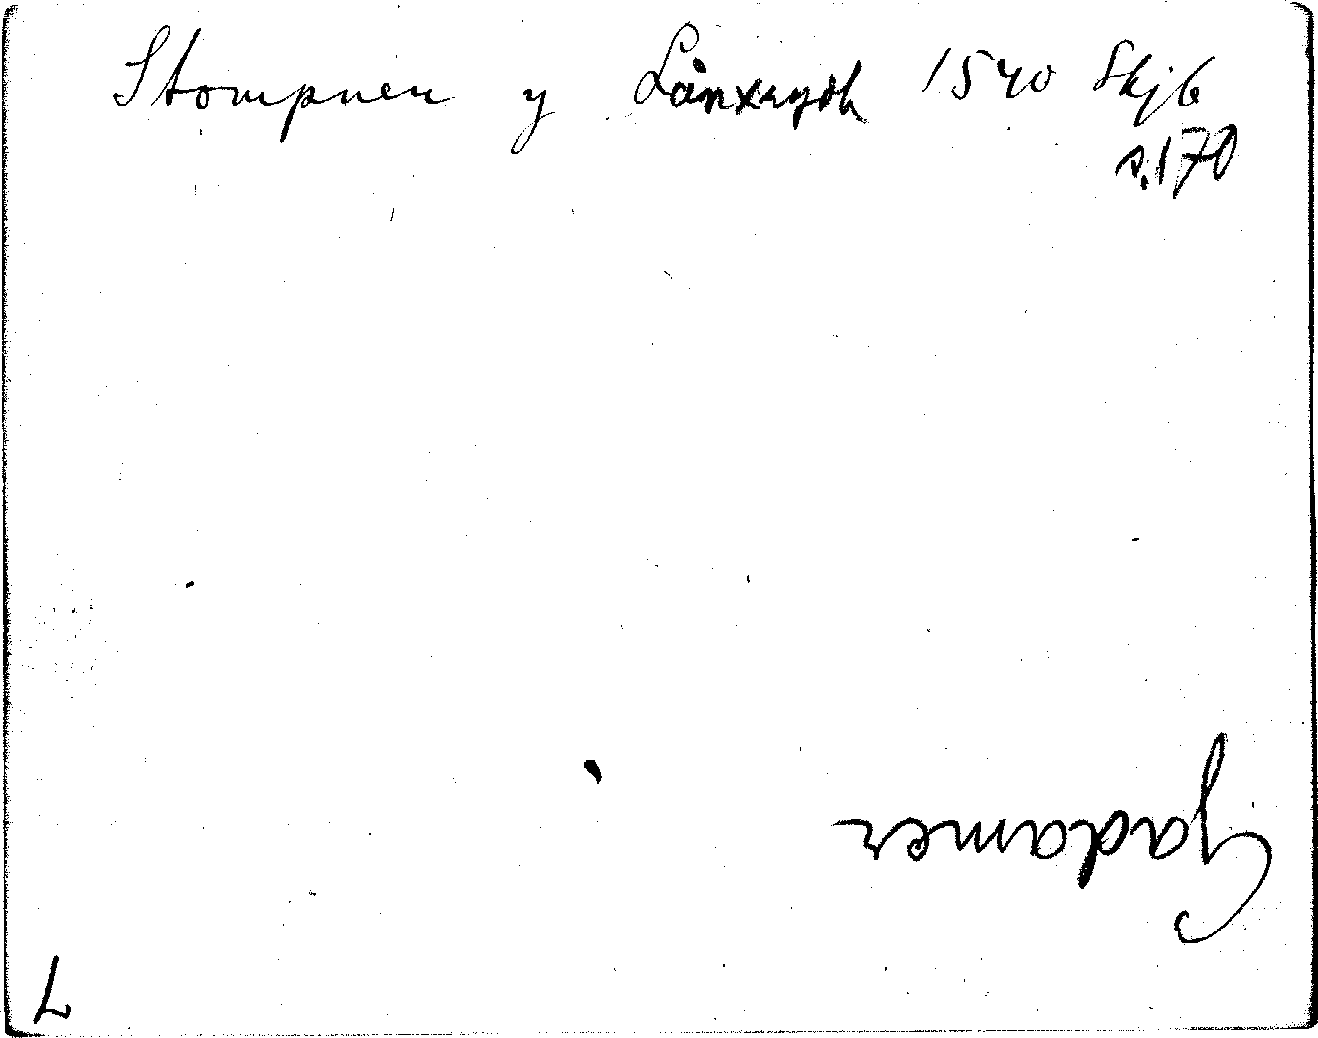 Stompnen y Lånxrydh 1540 Skjb
s.170
Gadamer
7